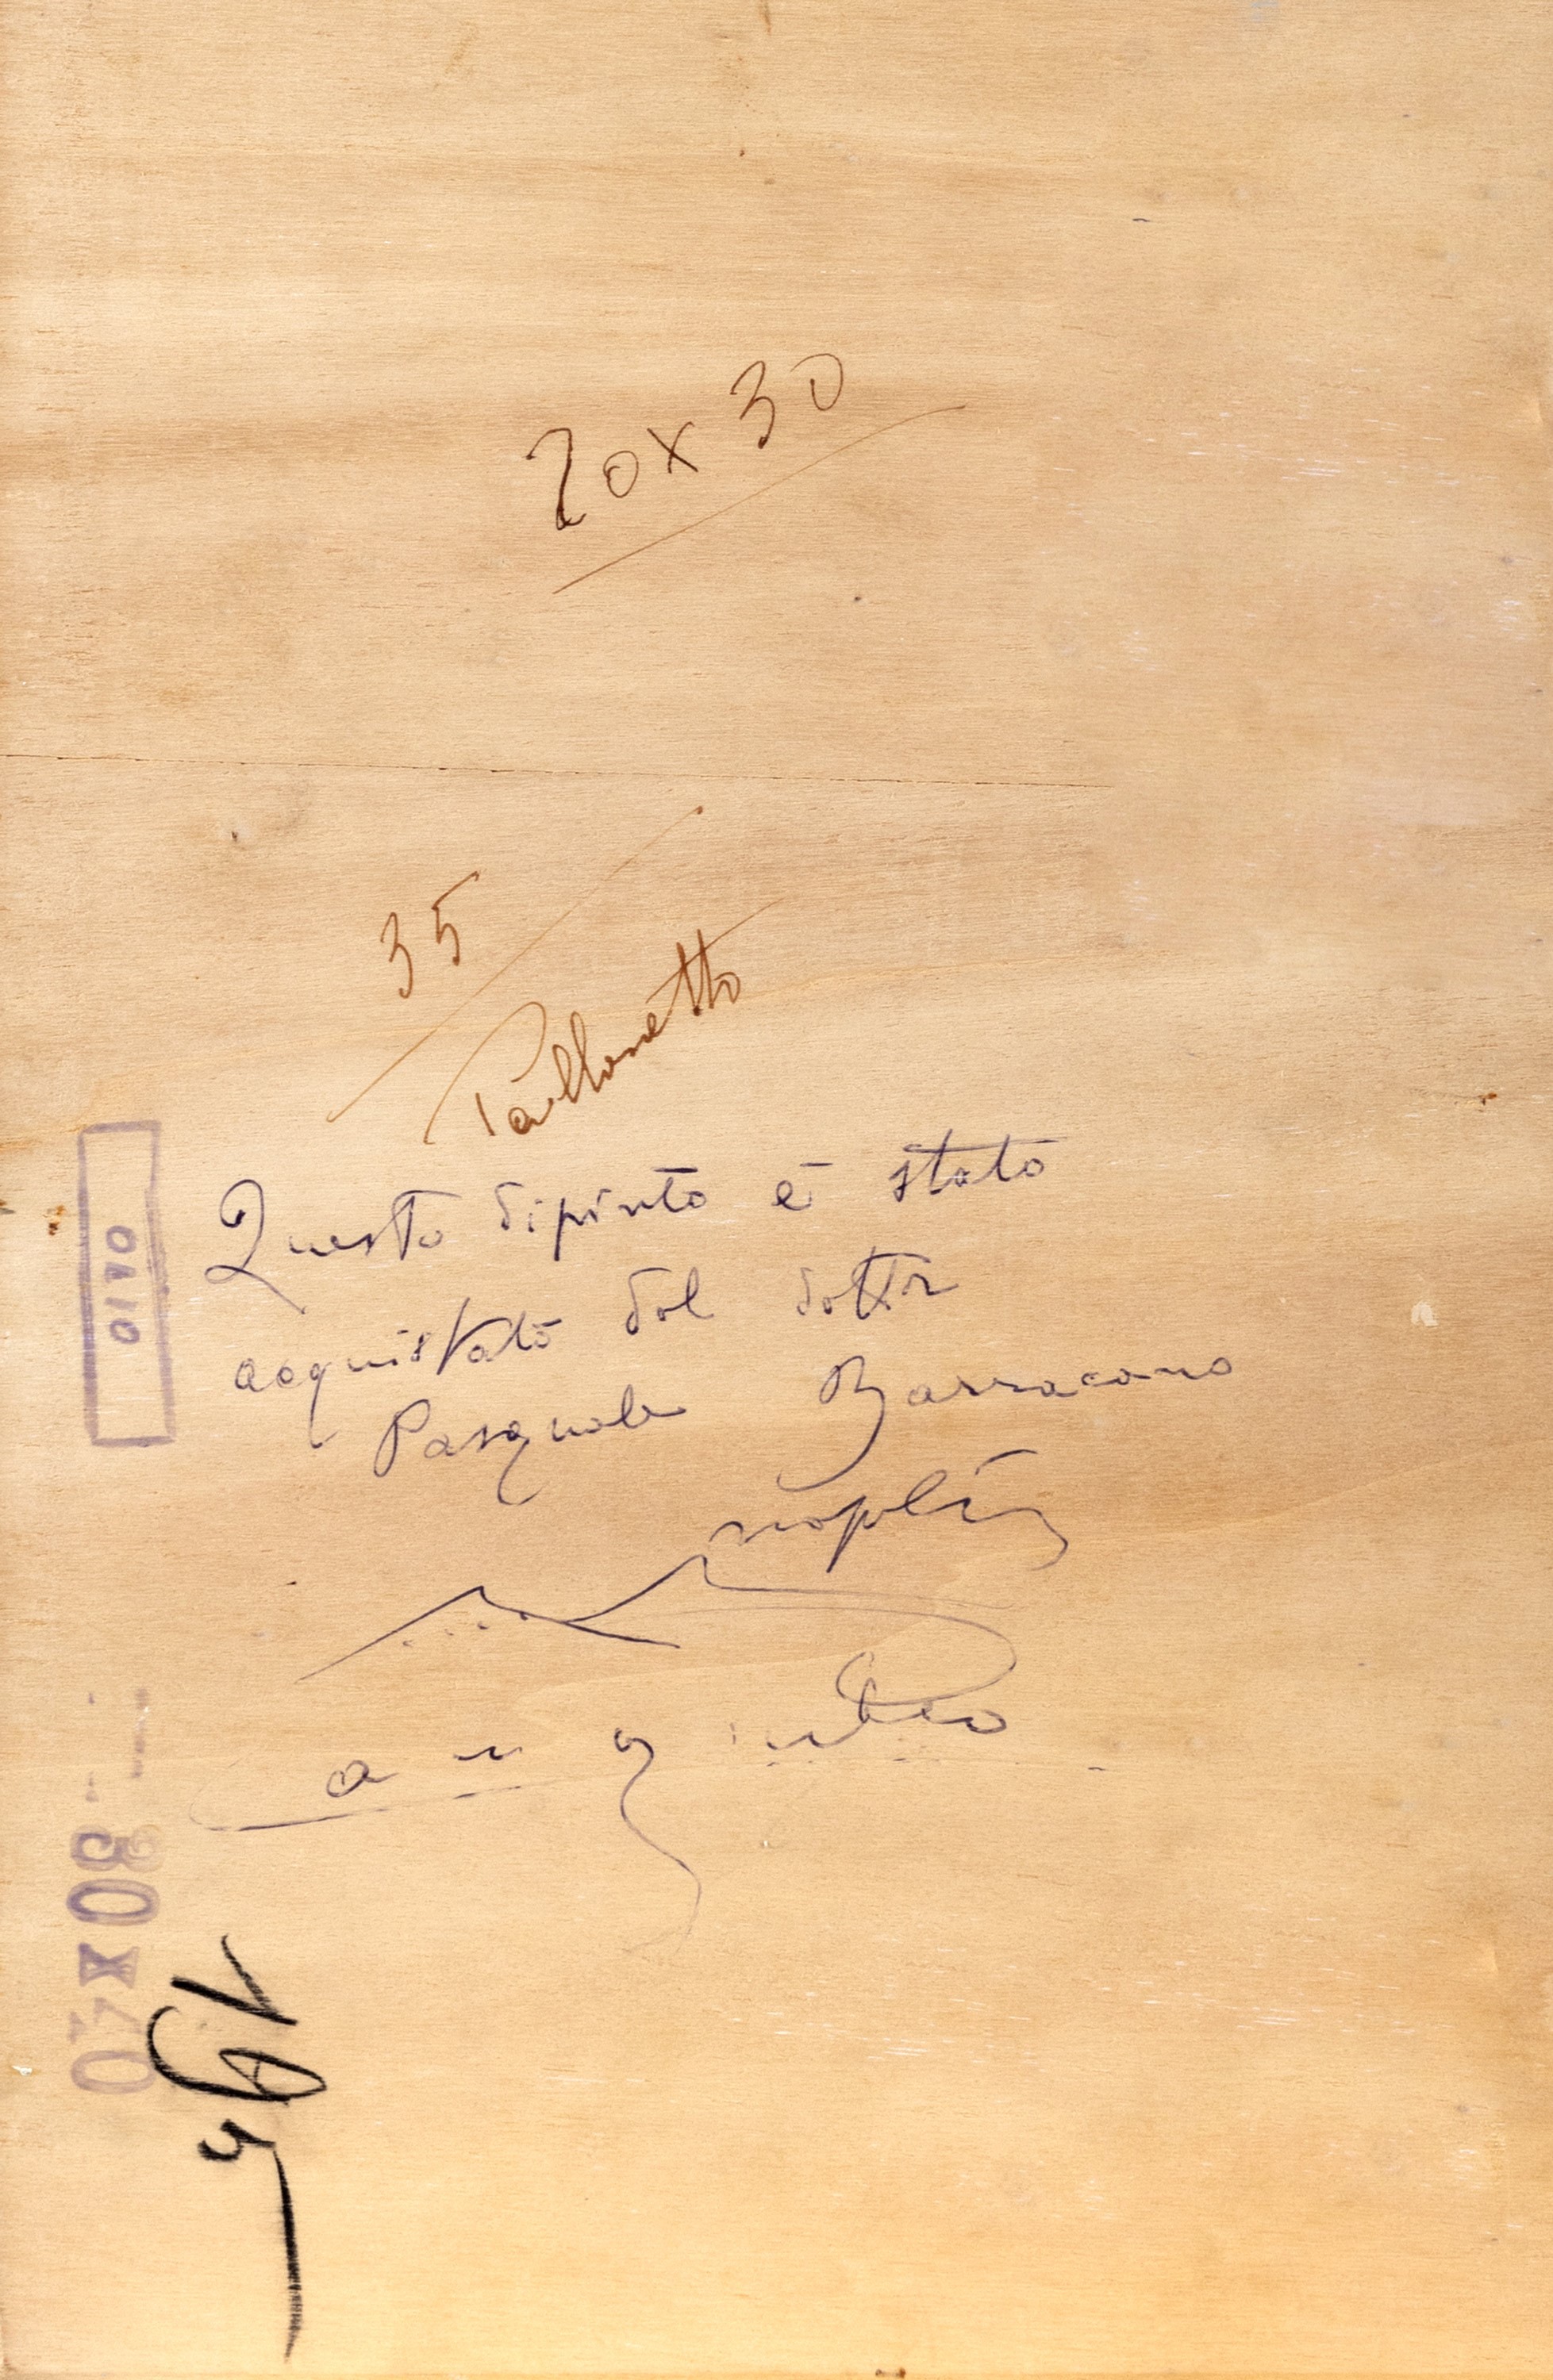 20x30
35
Pallonetto
Questo dipinto è stato
acquistato dal dottor
Pasquale Barracano
napoli
OLIO
30x20